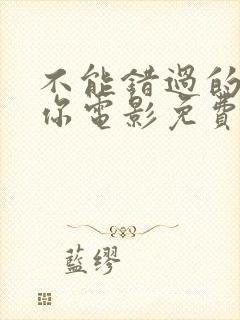 不能错過的
你電影免費
藍缪